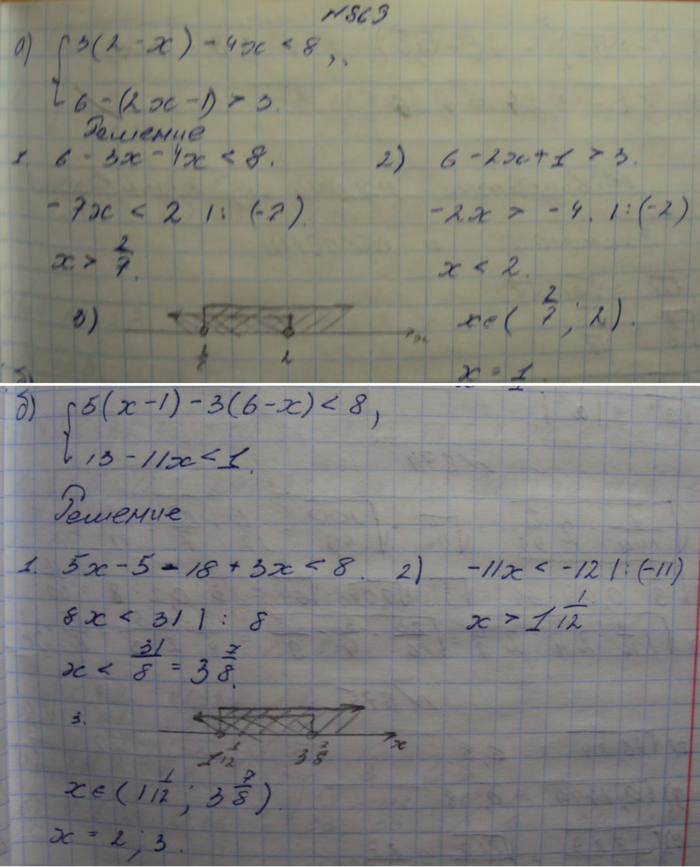 №863
а) { 3(2 - x) - 4x < 8,
6 - (2x - 1) > 3.
Решение
1. 6 - 3x - 4x < 8.
-7x < 2 | : (-7)
x > 2/7.
2) 6 - 2x + 1 > 3.
-2x > -4. | : (-2)
x < 2.
3) 2 x
x ∈ (2/7; 2).
x = 1
б)
б) { 5(x - 1) - 3(6 - x) < 8,
13 - 11x < 1.
Решение
1. 5x - 5 - 18 + 3x < 8.
8x < 31 | : 8
x < 31/8 = 3 7/8.
2) -11x < -12 | : (-11)
x > 1 1/12
3. 1 1/12 3 7/8 x
x ∈ (1 1/12; 3 7/8).
x = 2; 3.